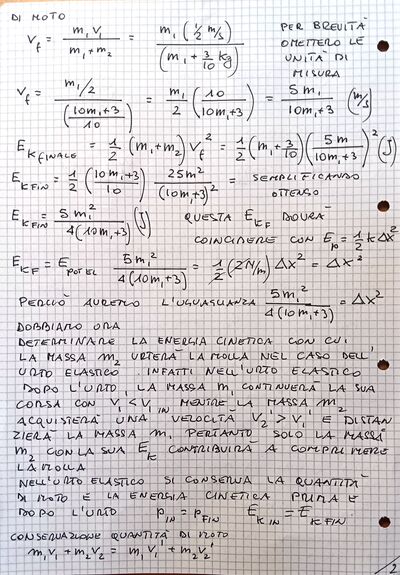 DI MOTO
V_f = m₁V₁/(m₁+m₂) = m₁(1/2 m/s)/(m₁+3/10 kg)
PER BREVITÀ
OMETTERÒ LE
UNITÀ DI
MISURA
V_f = (m₁/2)/((10m₁+3)/10) = m₁/2 (10/(10m₁+3)) = 5m₁/(10m₁+3) (m/s)
E_K FINALE = 1/2 (m₁+m₂) V_f² = 1/2 (m₁+3/10)(5m/(10m₁+3))² (J)
E_K FIN = 1/2 ((10m₁+3)/10) 25m₁²/(10m₁+3)² = SEMPLIFICANDO
OTTENGO
E_K FIN = 5m₁²/(4(10m₁+3)) (J) QUESTA E_KF DOVRÀ
COINCIDERE CON E_P = 1/2 k Δx²
E_KF = E_POT EL 5m₁²/(4(10m₁+3)) = 1/2 (2N/m) Δx² = Δx²
PERCIÒ AVREMO L'UGUAGLIANZA 5m₁²/(4(10m₁+3)) = Δx²
DOBBIAMO ORA
DETERMINARE LA ENERGIA CINETICA CON CUI
LA MASSA m₂ URTERÀ LA MOLLA NEL CASO DELL'
URTO ELASTICO. INFATTI NELL'URTO ELASTICO
DOPO L'URTO, LA MASSA m₁ CONTINUERÀ LA SUA
CORSA CON V₁' < V₁ IN MENTRE LA MASSA m₂
ACQUISTERÀ UNA VELOCITÀ V₂' > V₁' E DISTAN
ZIERÀ LA MASSA m₁ PERTANTO SOLO LA MASSA
m₂ CON LA SUA E_K CONTRIBUIRÀ A COMPRIMERE
LA MOLLA
NELL'URTO ELASTICO SI CONSERVA LA QUANTITÀ
DI MOTO E LA ENERGIA CINETICA PRIMA E
DOPO L'URTO P_IN = P_FIN E_K IN = E_K FIN
CONSERVAZIONE QUANTITÀ DI MOTO
m₁V₁ + m₂V₂ = m₁V₁' + m₂V₂'
/2